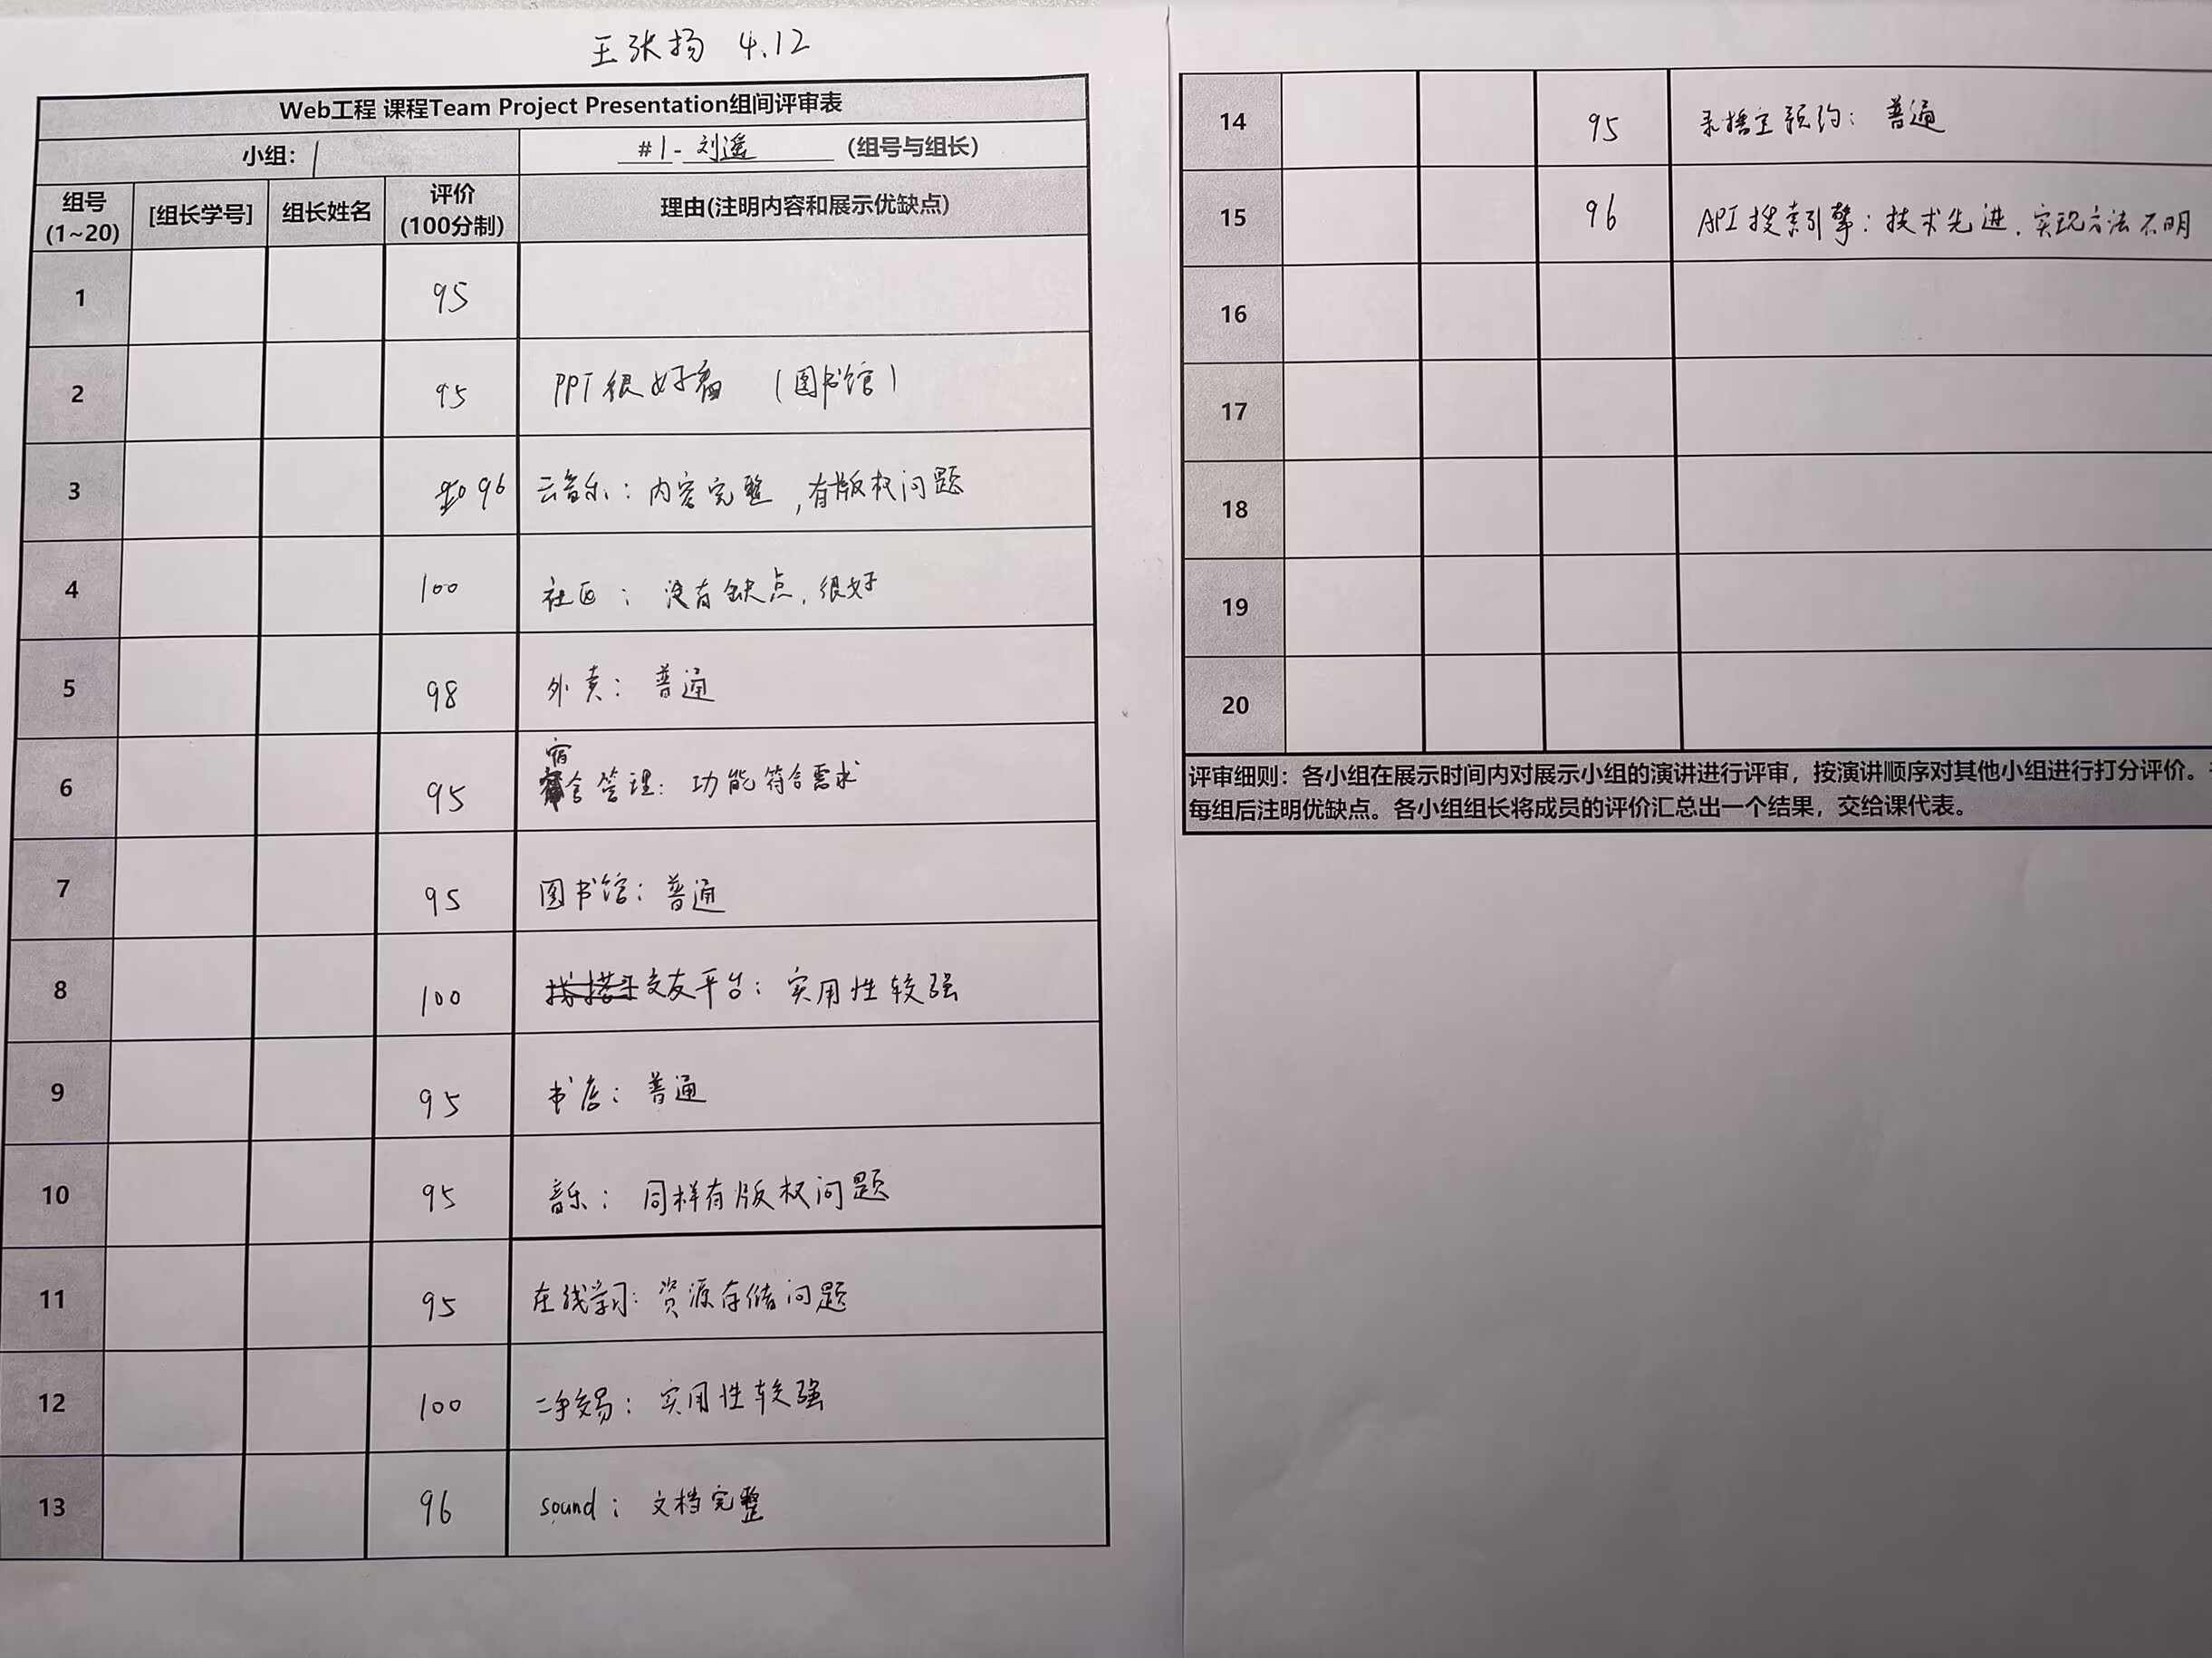 王张扬 4.12
Web工程 课程Team Project Presentation组间评审表
小组： 1 #1-刘遥 (组号与组长)
组号(1~20) [组长学号] 组长姓名 评价(100分制) 理由(注明内容和展示优缺点)
1 95
2 95 PPT很好看 (图书馆)
3 96 云音乐：内容完整，有版权问题
4 100 社区：没有缺点，很好
5 98 外卖：普通
6 95 宿舍管理：功能符合需求
7 95 图书馆：普通
8 100 交友平台：实用性较强
9 95 书店：普通
10 95 音乐：同样有版权问题
11 95 在线学习：资源存储问题
12 100 二手交易：实用性较强
13 96 sound：文档完整
14 95 预约：普通
15 96 API搜索引擎：技术先进，实现方法不明
16
17
18
19
20
评审细则：各小组在展示时间内对展示小组的演讲进行评审，按演讲顺序对其他小组进行打分评价。
每组后注明优缺点。各小组组长将成员的评价汇总出一个结果，交给课代表。